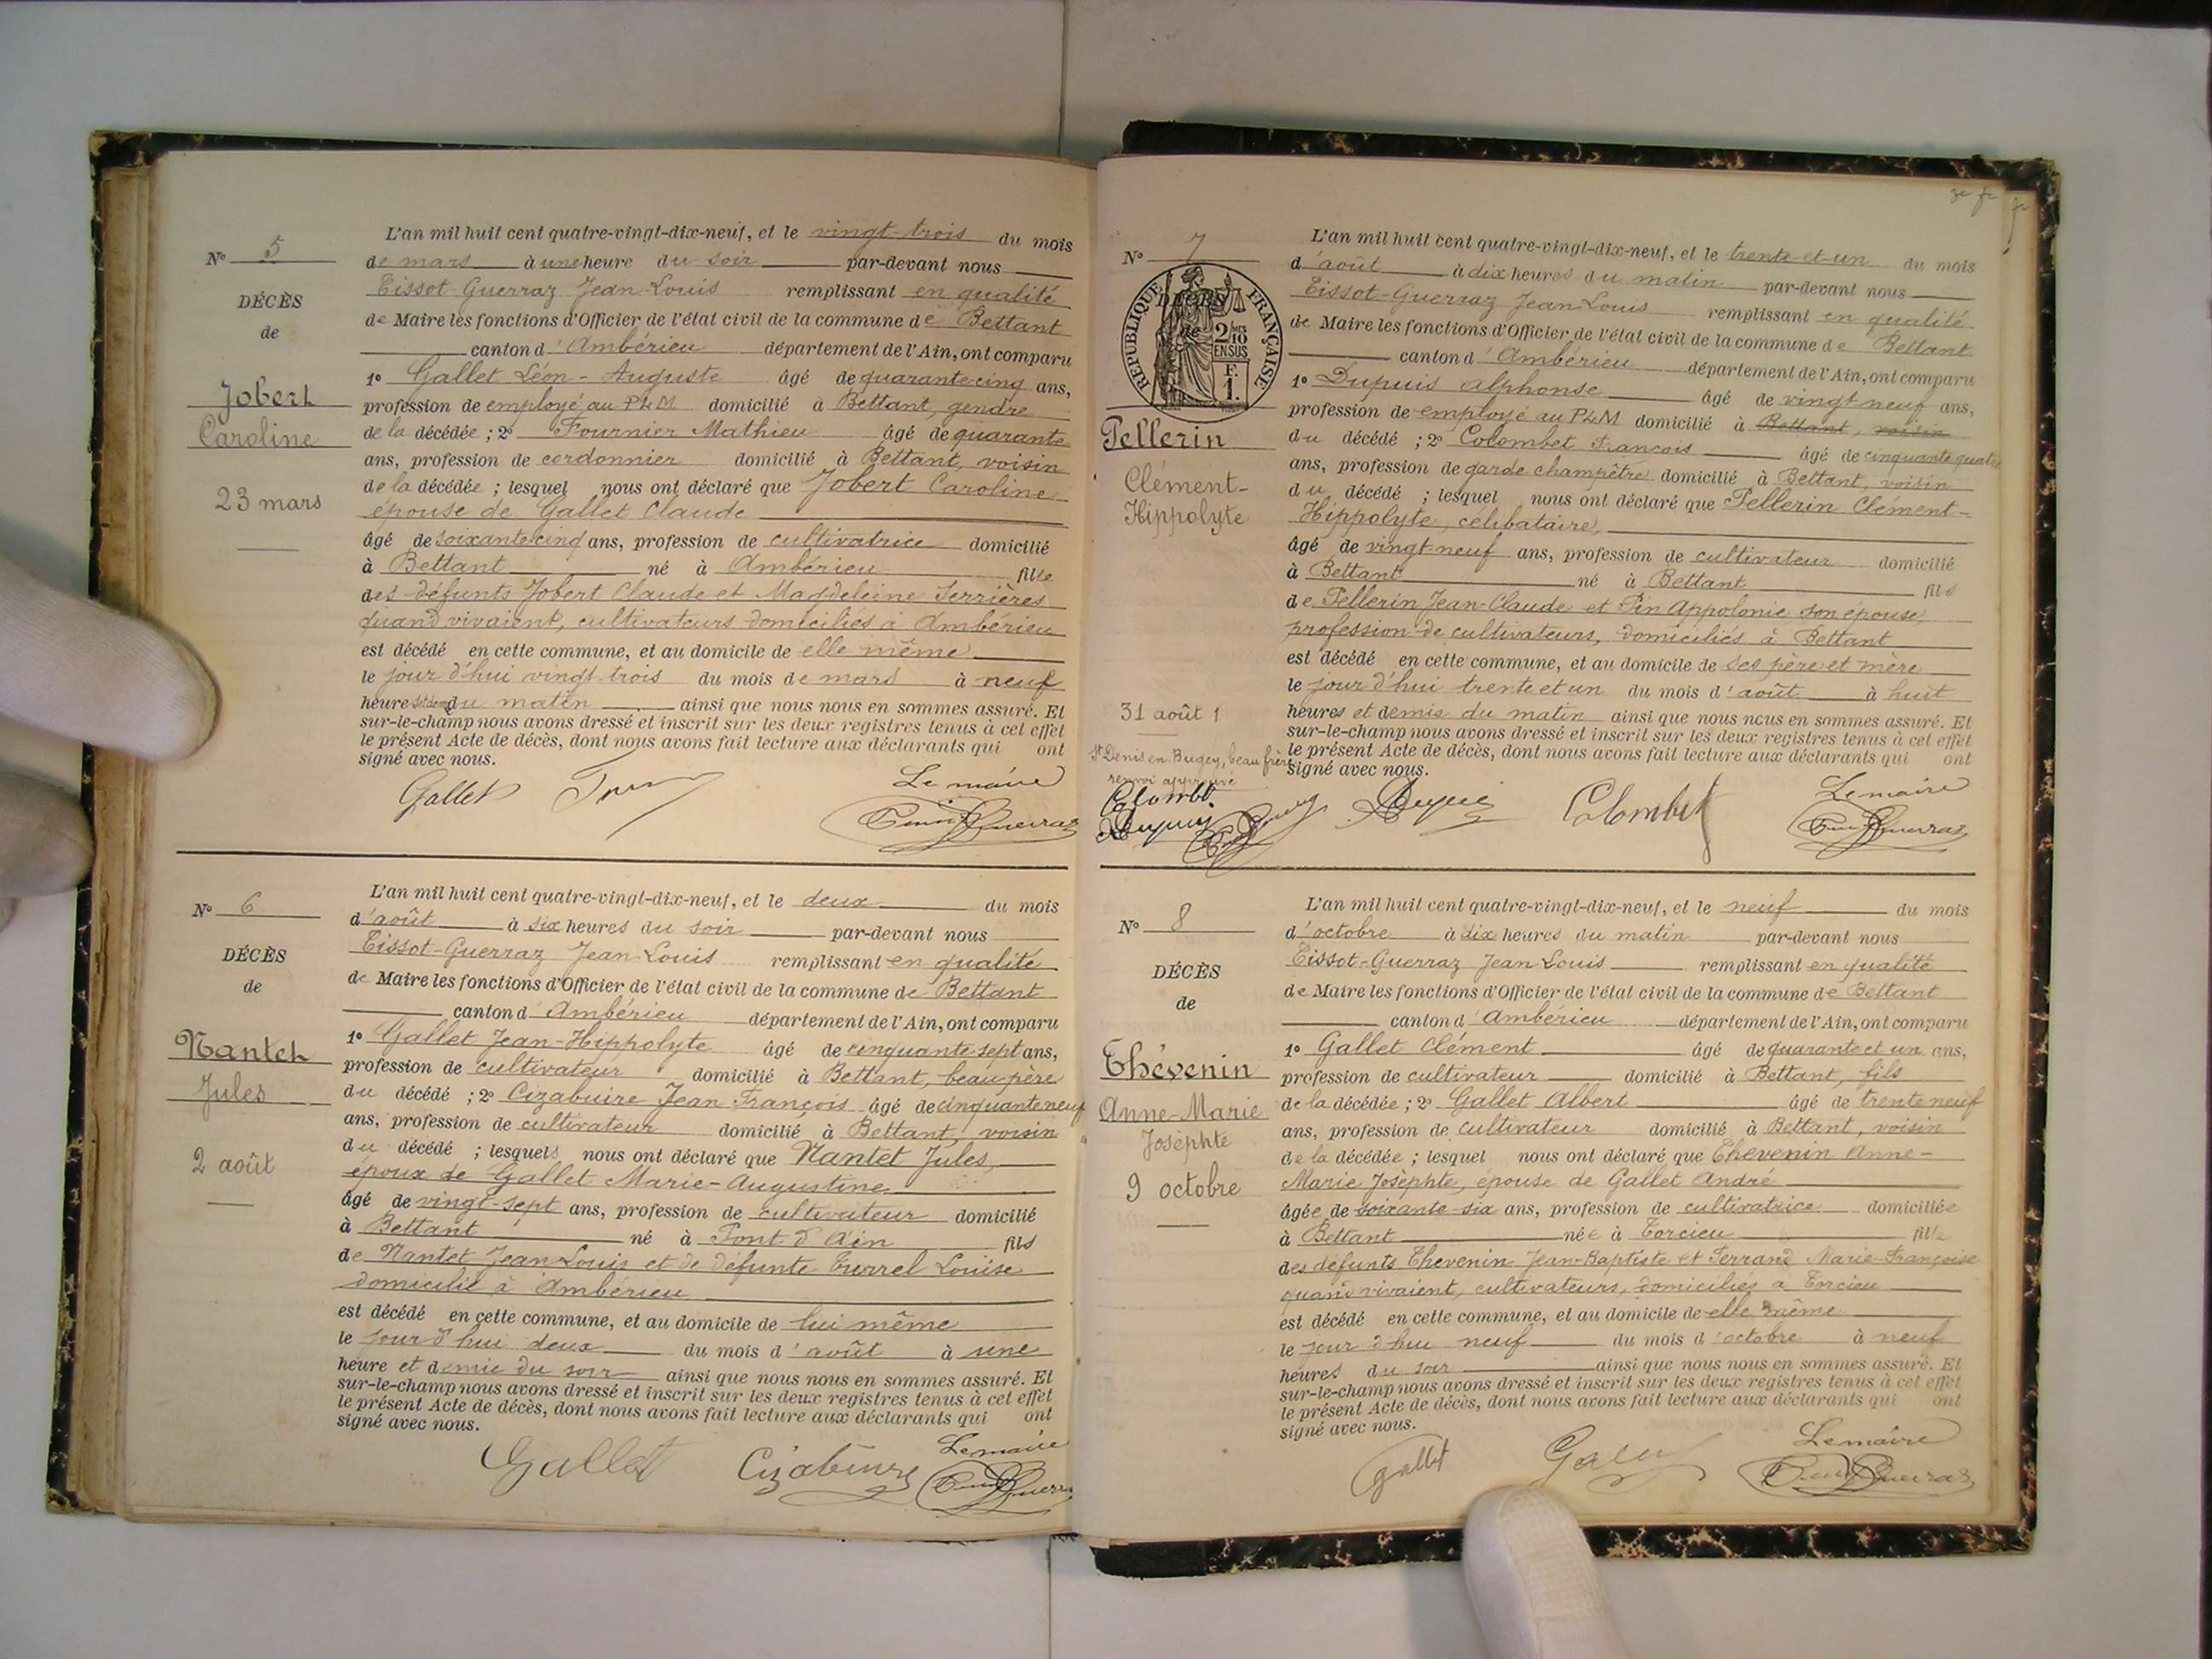 N° 5
DÉCÈS
de
Jobert
Caroline
23 mars
L'an mil huit cent quatre-vingt-dix-neuf, et le vingt-trois du mois
de mars à une heure du soir par-devant nous
Tissot-Guerraz Jean-Louis remplissant en qualité
de Maire les fonctions d'Officier de l'état civil de la commune de Bettant
canton d'Ambérieu département de l'Ain, ont comparu
1° Gallet Léon-Auguste âgé de quarante cinq ans,
profession de employé au PLM domicilié à Bettant, gendre
de la décédée ; 2° Fournier Mathieu âgé de quarante
ans, profession de cordonnier domicilié à Bettant, voisin
de la décédée ; lesquel nous ont déclaré que Jobert Caroline
épouse de Gallet Claude
âgé de soixante cinq ans, profession de cultivatrice domicilié
à Bettant né à Ambérieu fille
des défunts Jobert Claude et Magdeleine Ferrières
quand vivaient, cultivateurs domiciliés à Ambérieu
est décédé en cette commune, et au domicile de elle même
le jour d'hui vingt trois du mois de mars à neuf
heures et demie du matin ainsi que nous nous en sommes assuré. Et
sur-le-champ nous avons dressé et inscrit sur les deux registres tenus à cet effet
le présent Acte de décès, dont nous avons fait lecture aux déclarants qui ont
signé avec nous.
Gallet Le maire
N° 6
DÉCÈS
de
Nantet
Jules
2 août
L'an mil huit cent quatre-vingt-dix-neuf, et le deux du mois
d'août à six heures du soir par-devant nous
Tissot-Guerraz Jean-Louis remplissant en qualité
de Maire les fonctions d'Officier de l'état civil de la commune de Bettant
canton d'Ambérieu département de l'Ain, ont comparu
1° Gallet Jean-Hippolyte âgé de cinquante sept ans,
profession de cultivateur domicilié à Bettant, beau-père
du décédé ; 2° Cizabuire Jean François âgé de cinquante neuf
ans, profession de cultivateur domicilié à Bettant, voisin
du décédé ; lesquels nous ont déclaré que Nantet Jules,
époux de Gallet Marie-Augustine
âgé de vingt-sept ans, profession de cultivateur domicilié
à Bettant né à Pont d'Ain fils
de Nantet Jean-Louis et de défunte Turrel Louise
domicilié à Ambérieu
est décédé en cette commune, et au domicile de lui même
le jour d'hui deux du mois d'août à une
heure et demie du soir ainsi que nous nous en sommes assuré. Et
sur-le-champ nous avons dressé et inscrit sur les deux registres tenus à cet effet
le présent Acte de décès, dont nous avons fait lecture aux déclarants qui ont
signé avec nous.
Gallet Cizabuire Le maire
N° 7
RÉPUBLIQUE FRANÇAISE
DÉCÈS
de
2/10
EN SUS
F.
1.
Pellerin
Clément-
Hippolyte
31 août 1
St Denis en Bugey, beau frère
renvoi approuvé
Colombet
Dupuis
L'an mil huit cent quatre-vingt-dix-neuf, et le trente et un du mois
d'août à dix heures du matin par-devant nous
Tissot-Guerraz Jean-Louis remplissant en qualité
de Maire les fonctions d'Officier de l'état civil de la commune de Bettant
canton d'Ambérieu département de l'Ain, ont comparu
1° Dupuis Alphonse âgé de vingt neuf ans,
profession de employé au PLM domicilié à Bettant, voisin
du décédé ; 2° Colombet François âgé de cinquante quatre
ans, profession de garde champêtre domicilié à Bettant, voisin
du décédé ; lesquel nous ont déclaré que Pellerin Clément-
Hippolyte, célibataire,
âgé de vingt-neuf ans, profession de cultivateur domicilié
à Bettant né à Bettant fils
de Pellerin Jean-Claude et Pin Appolonie son épouse,
profession de cultivateurs, domiciliés à Bettant
est décédé en cette commune, et au domicile de ses père et mère
le jour d'hui trente et un du mois d'août à huit
heures et demie du matin ainsi que nous nous en sommes assuré. Et
sur-le-champ nous avons dressé et inscrit sur les deux registres tenus à cet effet
le présent Acte de décès, dont nous avons fait lecture aux déclarants qui ont
signé avec nous.
Dupuis Colombet Le maire
N° 8
DÉCÈS
de
Thévenin
Anne-Marie
Josèphte
9 octobre
L'an mil huit cent quatre-vingt-dix-neuf, et le neuf du mois
d'octobre à dix heures du matin par-devant nous
Tissot-Guerraz Jean Louis remplissant en qualité
de Maire les fonctions d'Officier de l'état civil de la commune de Bettant
canton d'Ambérieu département de l'Ain, ont comparu
1° Gallet Clément âgé de quarante et un ans,
profession de cultivateur domicilié à Bettant, fils
de la décédée ; 2° Gallet Albert âgé de trente neuf
ans, profession de cultivateur domicilié à Bettant, voisin
de la décédée ; lesquel nous ont déclaré que Thevenin Anne-
Marie Josèphte, épouse de Gallet André
âgée de soixante-six ans, profession de cultivatrice domiciliée
à Bettant née à Torcieu fille
des défunts Thevenin Jean-Baptiste et Ferrand Marie-Françoise
quand vivaient, cultivateurs, domiciliés à Torcieu
est décédé en cette commune, et au domicile de elle même
le jour d'hui neuf du mois d'octobre à neuf
heures du soir ainsi que nous nous en sommes assuré. Et
sur-le-champ nous avons dressé et inscrit sur les deux registres tenus à cet effet
le présent Acte de décès, dont nous avons fait lecture aux déclarants qui ont
signé avec nous.
Gallet Le maire